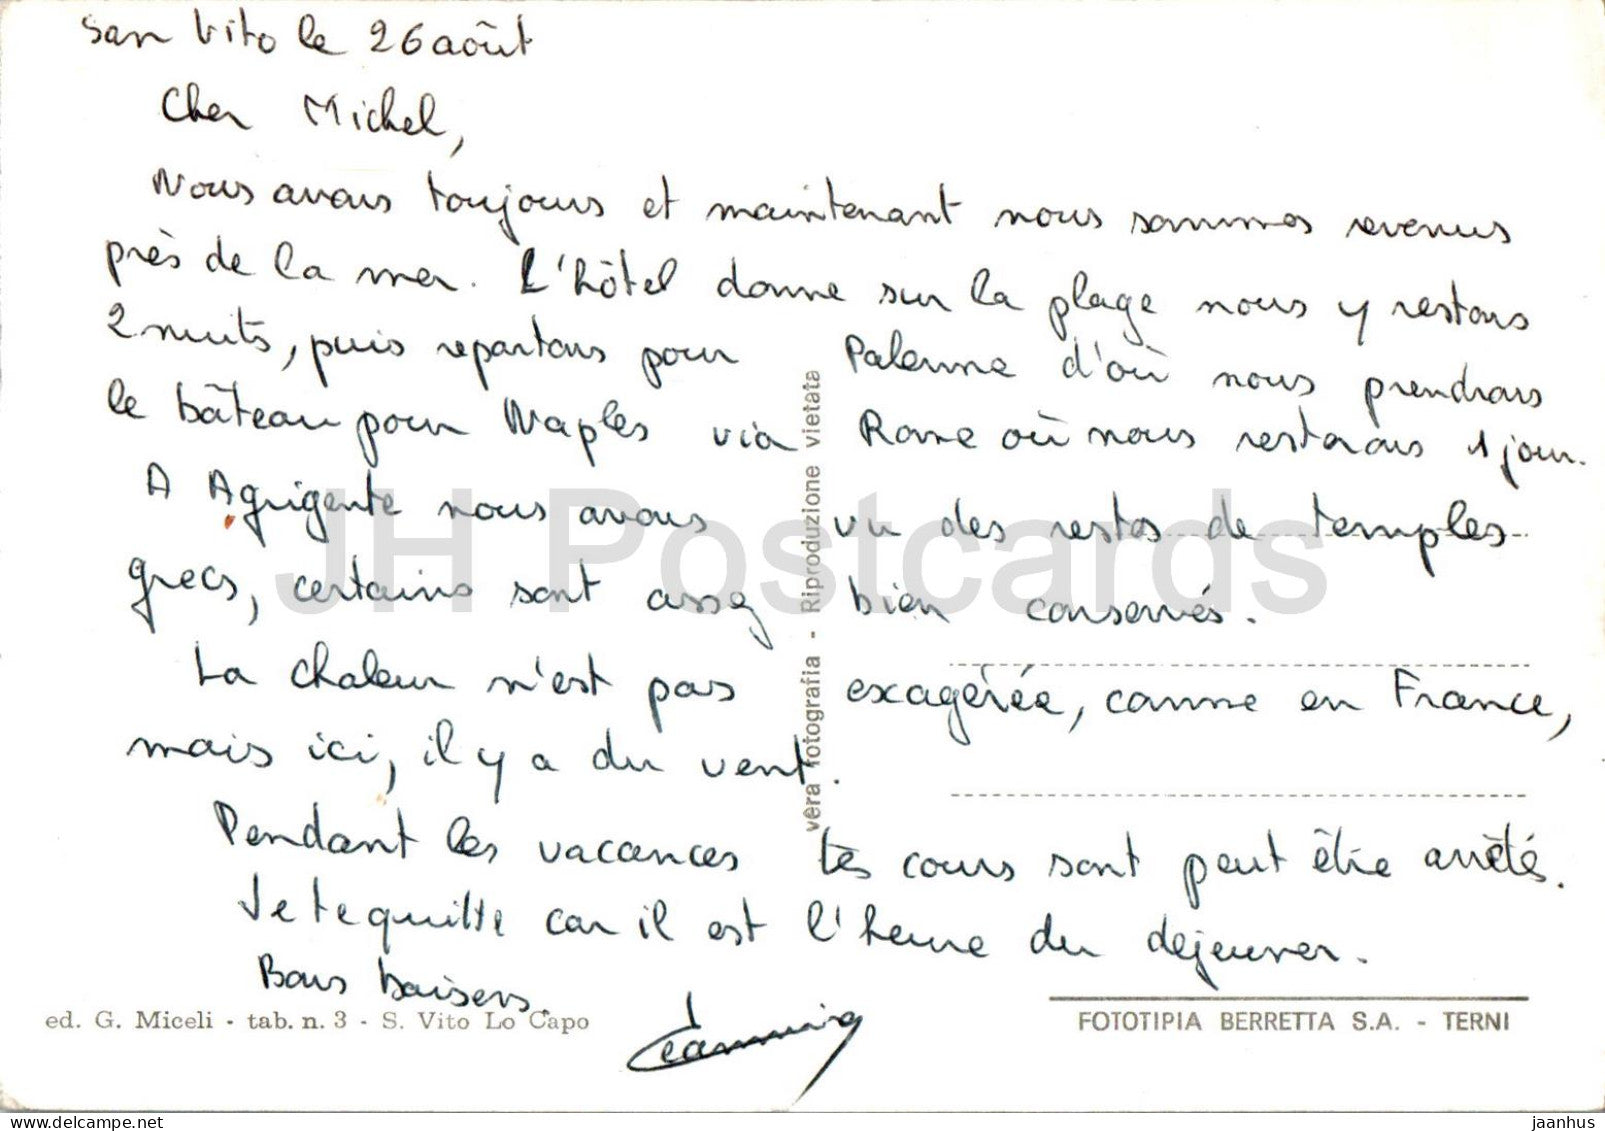 San Vito le 26 août
Cher Michel,
Nous avons toujours et maintenant nous sommes revenus
près de la mer. L'hôtel donne sur la plage nous y restons
2 nuits, puis repartons pour Palerme d'où nous prendrons
le bâteau pour Naples via Rome où nous resterons 1 jour.
A Agrigente nous avons vu des restes de temples
grecs, certains sont assez bien conservés.
La chaleur n'est pas exagérée, comme en France,
mais ici, il y a du vent.
Pendant les vacances tes cours sont peut être arrêtés.
Je te quitte car il est l'heure du déjeuner.
Bons baisers.
ed. G. Miceli - tab. n. 3 - S. Vito Lo Capo
FOTOTIPIA BERRETTA S.A. - TERNI
vera fotografia - Riproduzione vietata
JH Postcards
jaanhus / delcampe.net